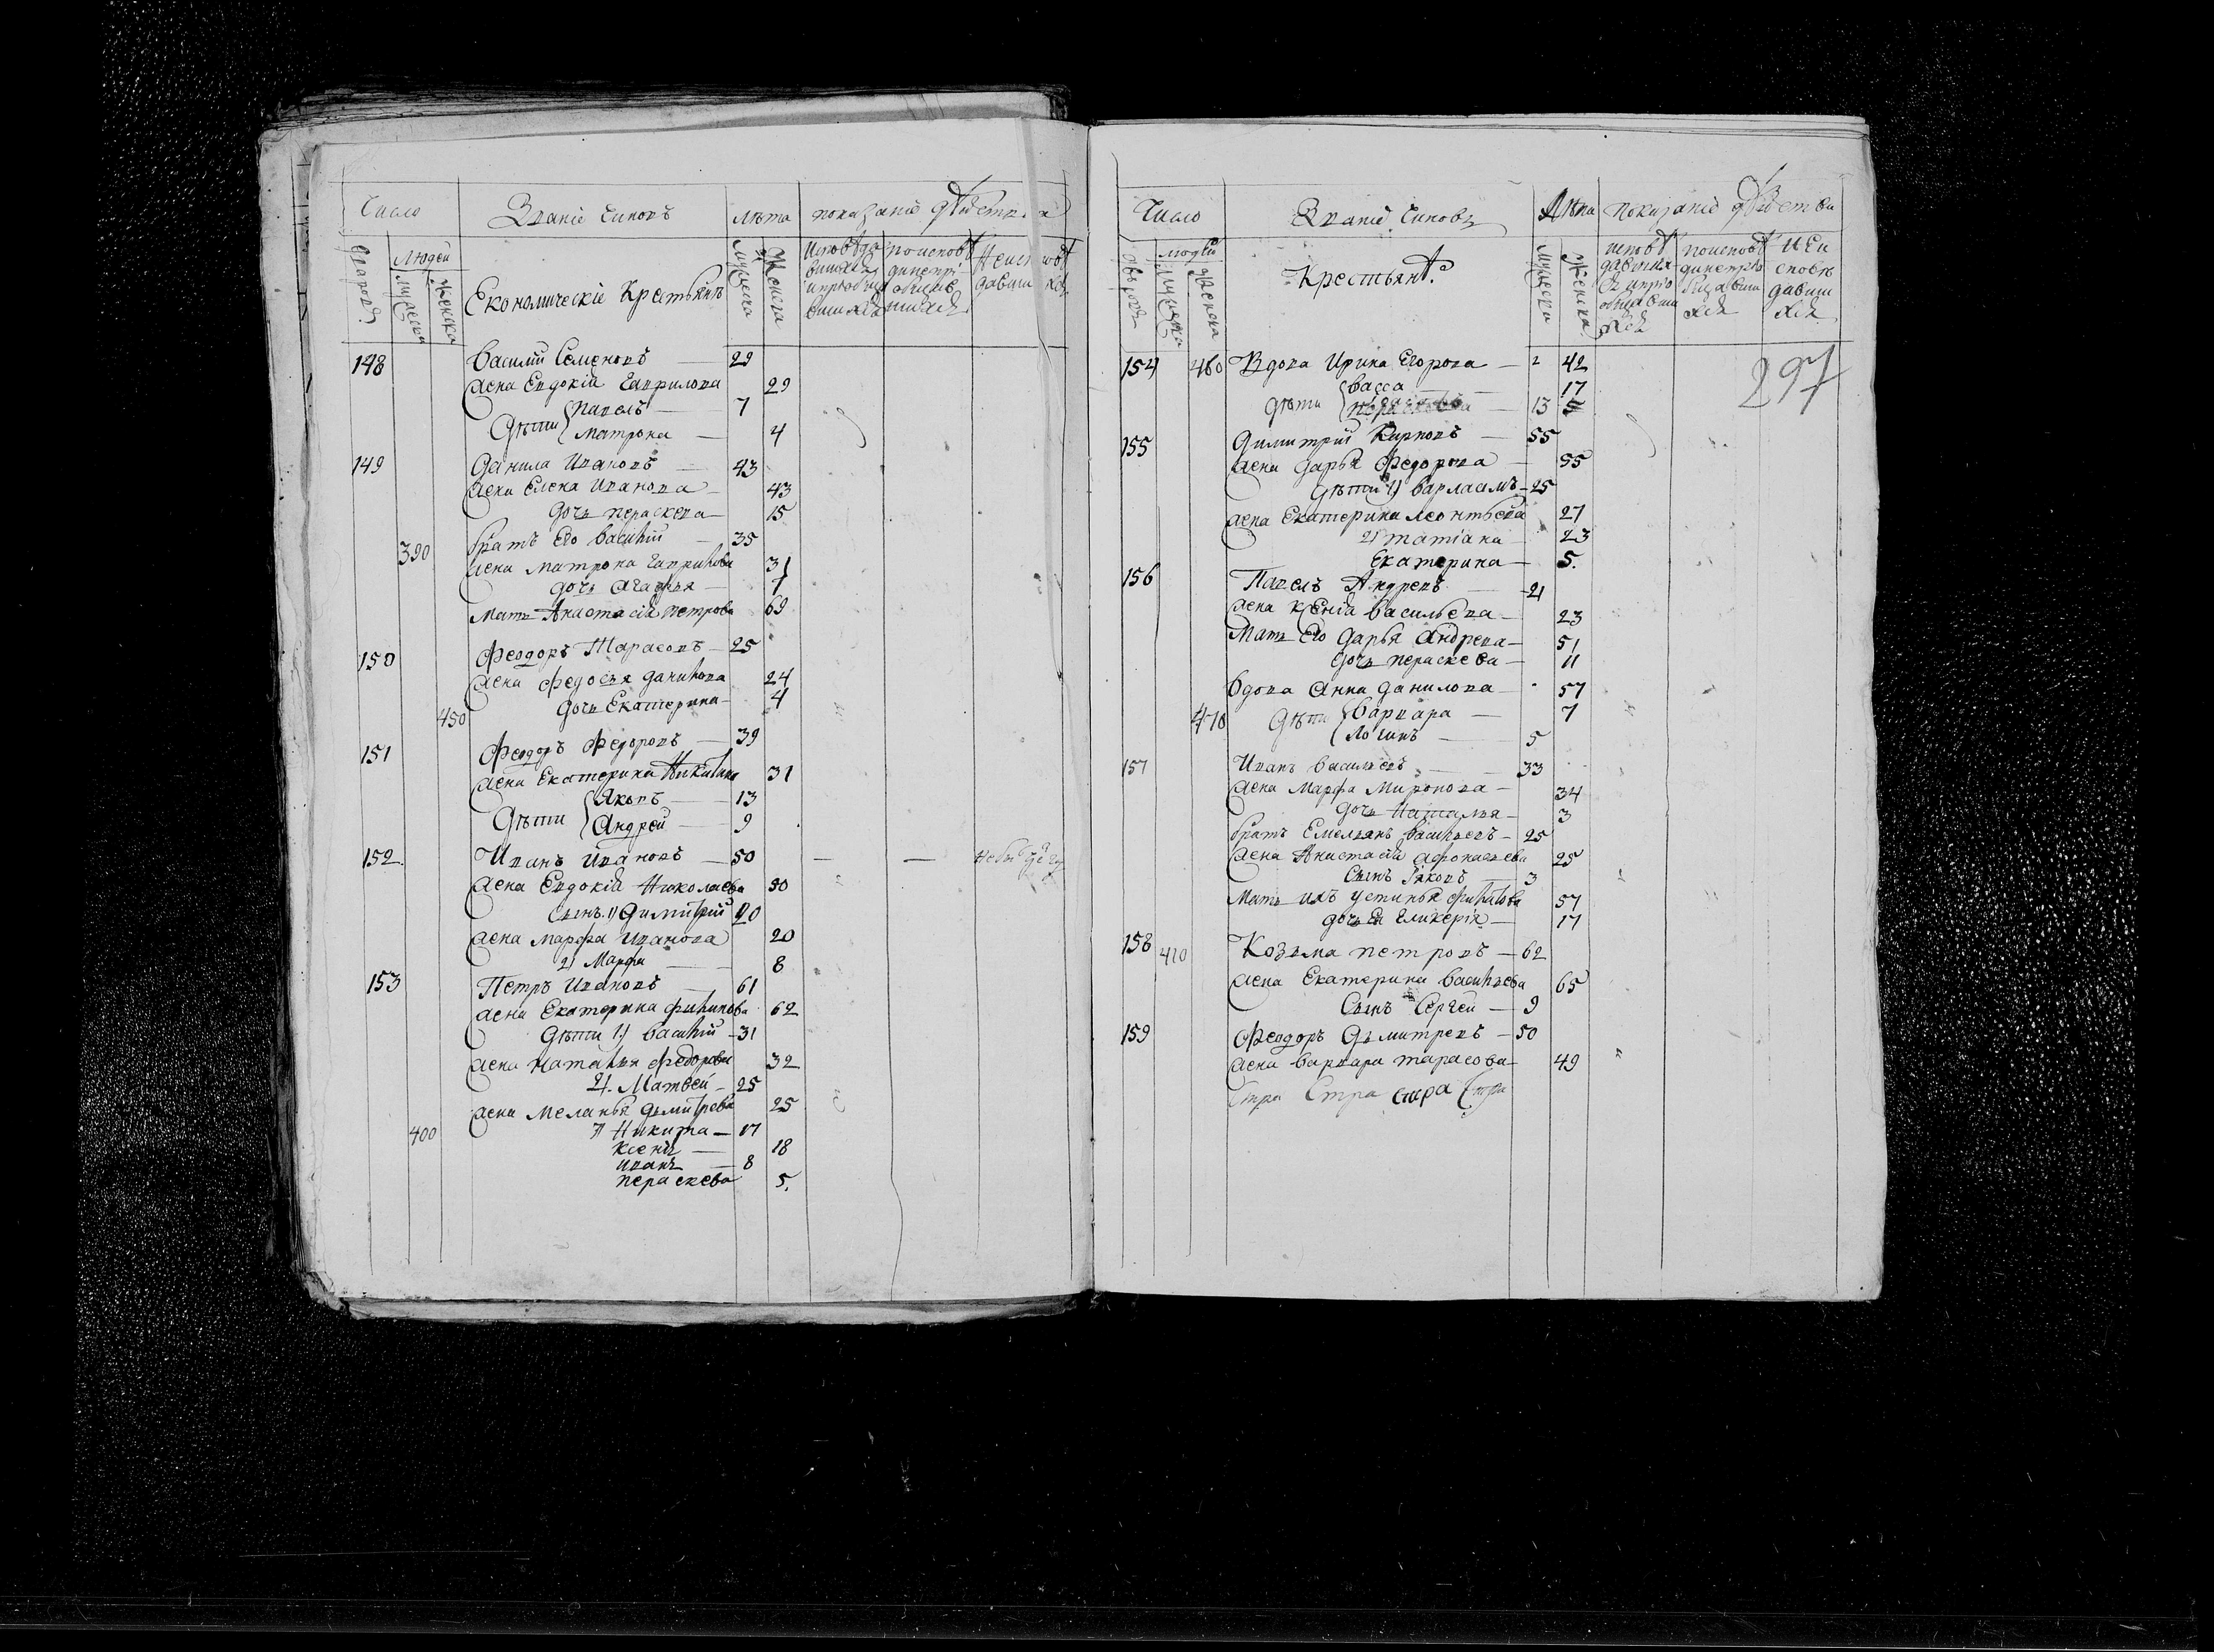 Число Званiе Чиновъ Лѣта показанiе дѣйства
дворовъ Людей мужеска женска Економическiе Крестьянъ мужеска женска
148 Василiй Семеновъ — 29
жена Евдокiя Гаврилова 29
дѣти Павелъ — 7
Матрона — 4
149 Данила Ивановъ — 43
жена Елена Иванова — 43
дочь Пераскева — 15
390 братъ его Василiй — 35
жена Матрона Гаврилова 31
дочь Агафья — 1
Мать Анастасiя Петрова 69
150 Феодоръ Тарасовъ — 25
жена Федосья Данилова 24
450 дочь Екатерина — 4
151 Феодоръ Федоровъ — 39
жена Екатерина Никитина 31
дѣти Яковъ — 13
Андрей — 9
152 Иванъ Ивановъ — 50 — —
жена Евдокiя Николаева 50
сынъ 1) Димитрiй 20
жена Марфа Иванова 20
2) Марфа — 8
153 Петръ Ивановъ — 61
жена Екатерина Филипова 62
Дѣти 1) Василiй — 31
жена Наталья Федорова 32
2) Матвей — 25
жена Меланья Дмитрева 25
400 Никита — 17
Ксенiя — 18
Иванъ — 8
Пераскева 5.
Число Званiе Чиновъ Лѣта показанiе дѣйства
людей мужеска женска Крестьянъ. мужеска женска
297
154 460 Вдова Ирина Егорова — 42
дѣти Васса — 17
13 5
155 Димитрiй Карповъ — 55
жена Дарья Федорова — 55
Дѣти 1) Варлаамъ — 25
жена Екатерина Леонтьева 27
2) Татiана — 23
Екатерина — 5.
156 Павелъ Андревъ — 21
жена Ксенiа Васильева — 23
Мать его Дарья Андрева — 51
дочь Пераскева — 11
вдова Анна Данилова — 57
470 Дѣти Варвара — 7
Логинъ — 5
157 Иванъ Васильевъ — 33
жена Марфа Миронова — 34
дочь Наталья — 3
братъ Емельянъ Васильевъ — 25
жена Анастасiя Афонасьева 25
сынъ Яковъ — 3
Мать ихъ Устинья Филипова 57
дочь ея Гликерiя — 17
158 410 Козьма Петровъ — 62
жена Екатерина Васильева 65
Сынъ Сергей — 9
159 Феодоръ Дмитревъ — 50
жена Варвара Тарасова — 49
Стра Стра стра Стра